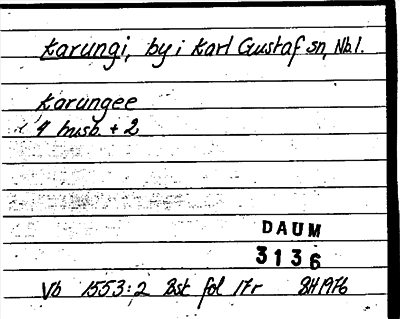 Karungi, by i Karl Gustaf sn, Nb.l.
Karungee
4 husb. + 2
DAUM
3136
Vb 1553:2 Bst fol 17r BH 1976